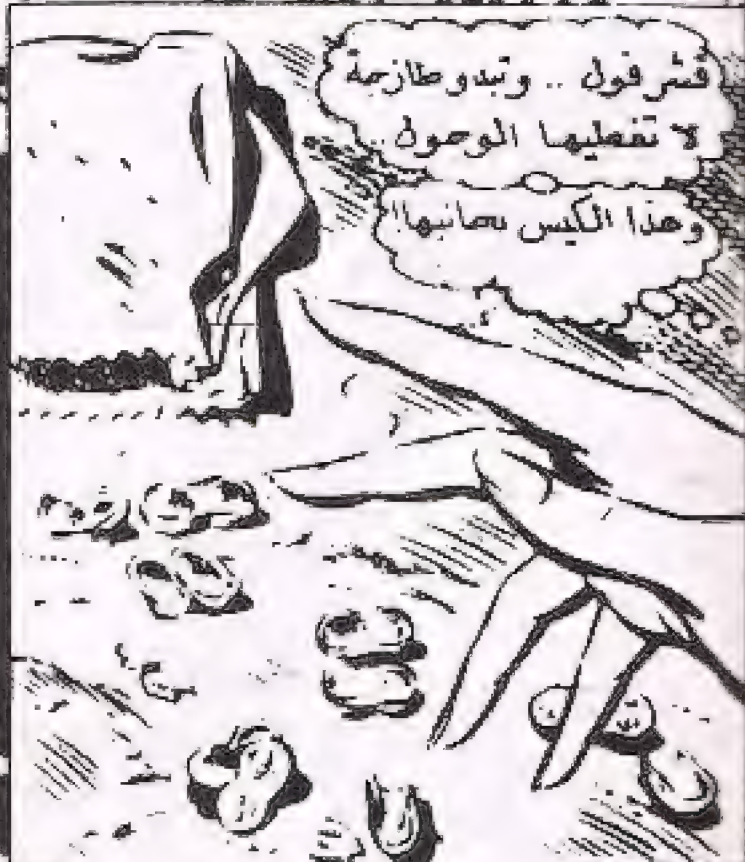 قشر فول .. وتبدو طازجة
لا تغطيها الوحول ..
وهذا الكيس بجانبها!!